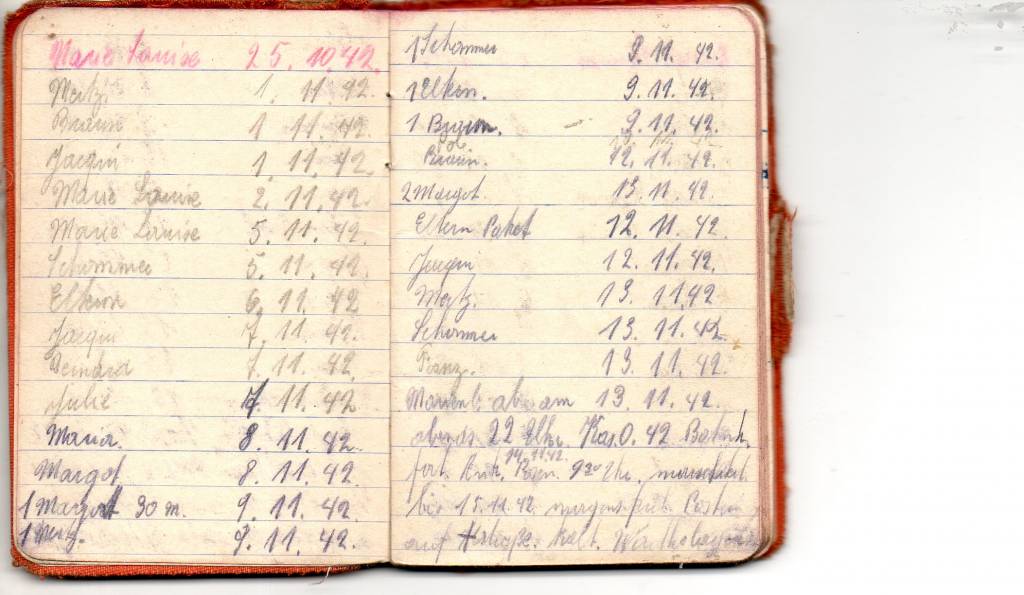 Marie Louise 25. 10. 42.
Metz. 1. 11. 42.
Braun 1 11. 42.
Jacqui 1. 11. 42.
Marie Louise 2. 11. 42.
Marie Louise 5. 11. 42.
Schommer 5. 11. 42.
Eltern 6. 11. 42
Jacqui 7. 11. 42.
7. 11. 42.
Julie 7. 11. 42
Maria. 8. 11. 42.
Margot 8. 11. 42.
1 Margot 30 m. 9. 11. 42.
1 Metz. 9. 11. 42.
1 Schommer 9. 11. 42.
1 Eltern. 9. 11. 42.
1 9. 11. 42.
Braun. 12. 11. 42.
2 Margot. 13. 11. 42.
Eltern Paket 12. 11. 42.
Jacqui 12. 11. 42.
Metz. 13. 11. 42
Schommer 13. 11. 42.
Franz. 13. 11. 42.
ab am 13. 11. 42.
abends 22 42
14.11.42.
fort. Ank. 9 30 Uhr. marschiert
bis 15. 11. 42 morgens Posten
auf kalt.